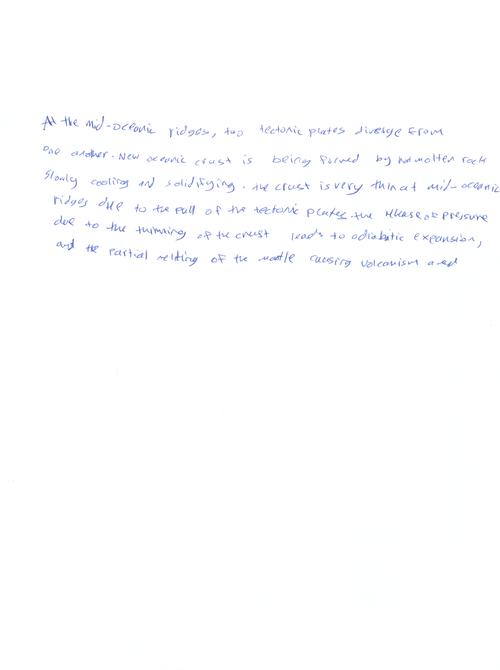 At the mid-oceanic ridges, two tectonic plates diverge from
one another. New oceanic crust is being formed by hot molten rock
slowly cooling and solidifying. the crust is very thin at mid-oceanic
ridges due to the pull of the tectonic plates. the release of pressure
due to the thinning of the crust leads to adiabatic expansion,
and the partial melting of the mantle causing volcanism and